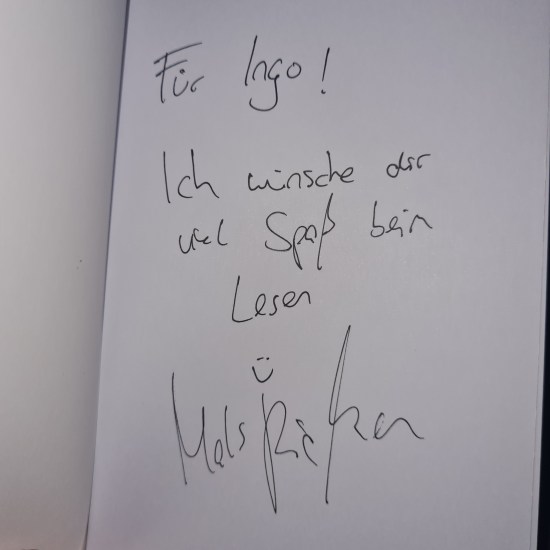 Für Ingo!
Ich wünsche dir
viel Spaß beim
Lesen
Ü